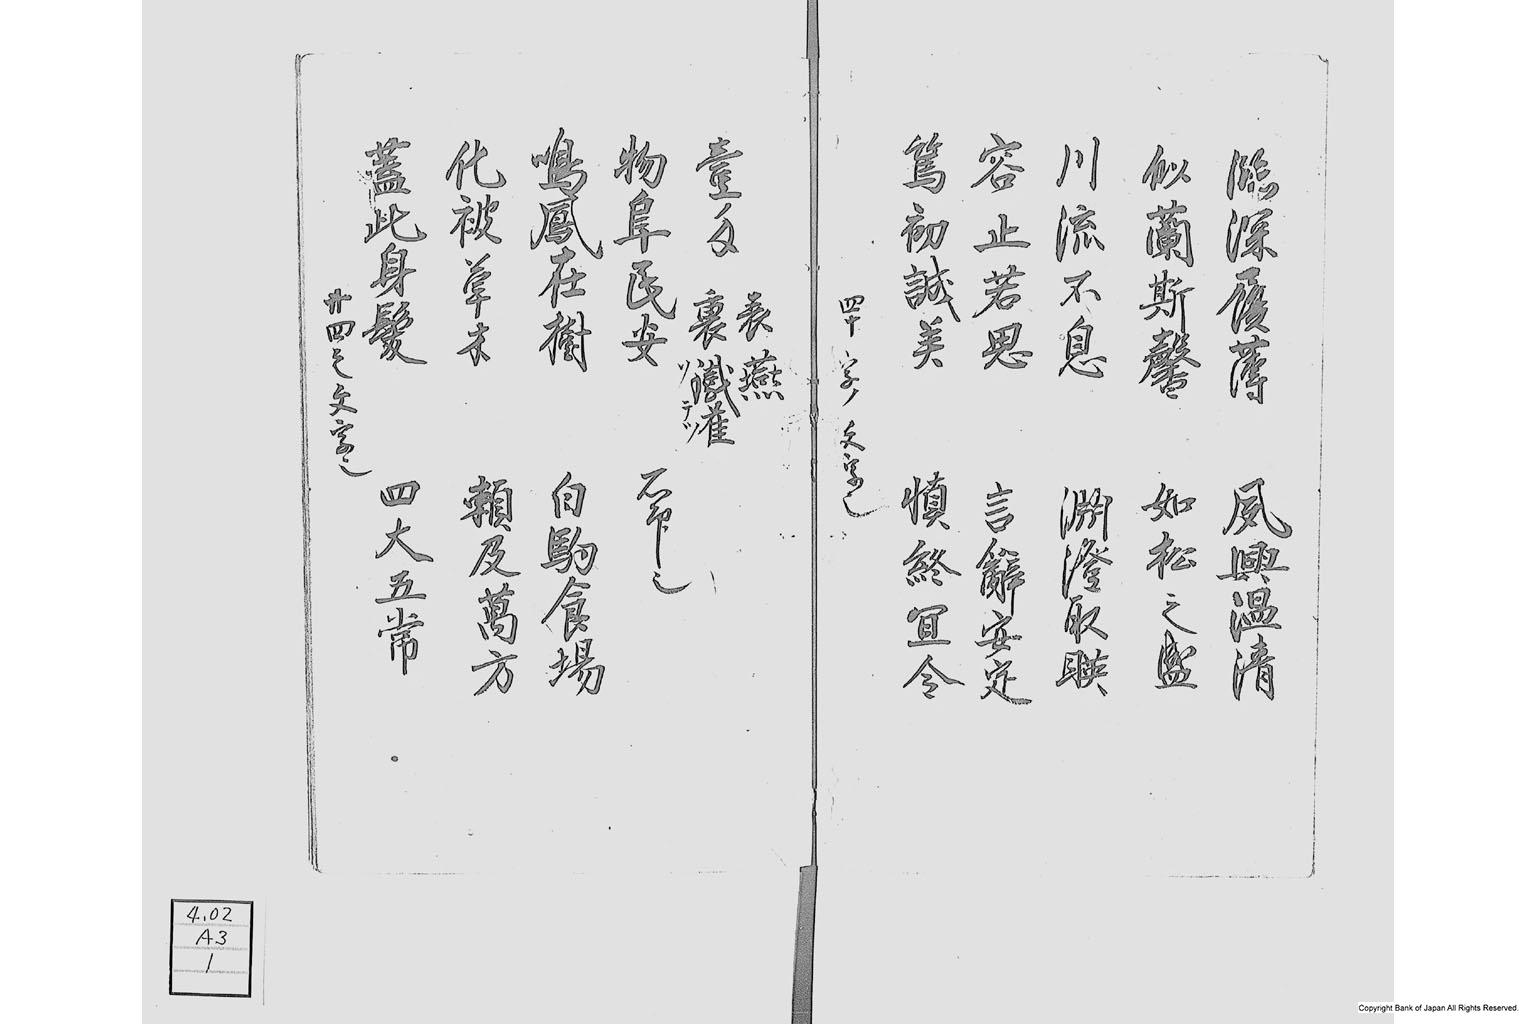 臨深履薄　夙興温清
似蘭斯馨　如松之盛
川流不息　淵澄取映
容止若思　言辭安定
篤初誠美　慎終宜令
四十字ノ文字也
壹匁
表 燕
裏 瀻雀
ソテツ
物阜民安
鳴鳳在樹　白駒食場
化被草木　頼及萬方
蓋此身髪　四大五常
廿四之文字也
4.02
A3
1
Copyright Bank of Japan All Rights Reserved.